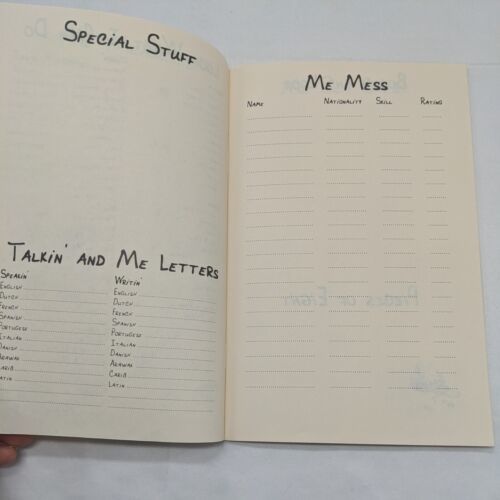 Special Stuff
Talkin' and Me Letters
Speakin' Writin'
English English
Dutch Dutch
French French
Spanish Spanish
Portugese Portugese
Italian Italian
Danish Danish
Arawak Arawak
Carib Carib
Latin Latin
Me Mess
Name Nationality Skill Rating
Pieces of Eight